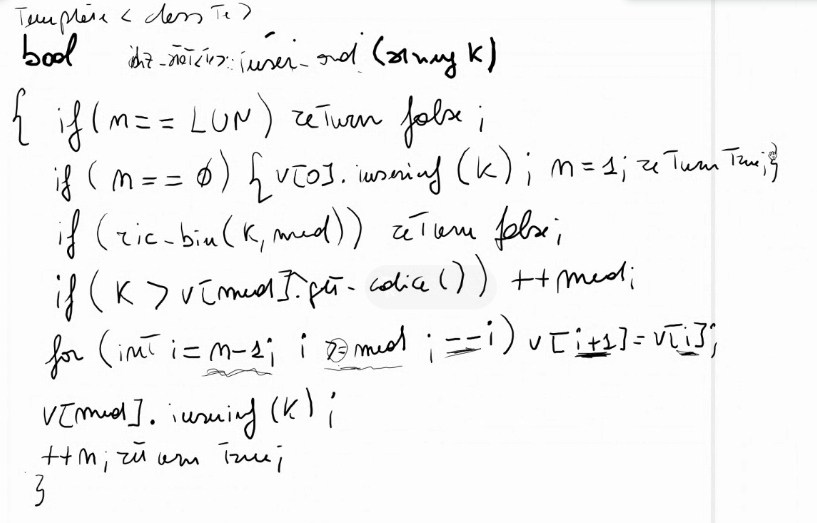 Template < class Te >
bool inser_ord (string K)
{ if (n == LUN) return false;
if (n == 0) { v[0]. inserinf (K); n = 1; return True; }
if (ric_bin(K, med)) return false;
if (K > v[med].get_codice()) ++med;
for (int i = n-1; i >= med ; --i) v[i+1] = v[i];
v[med]. inserinf (K);
++n; return True;
}